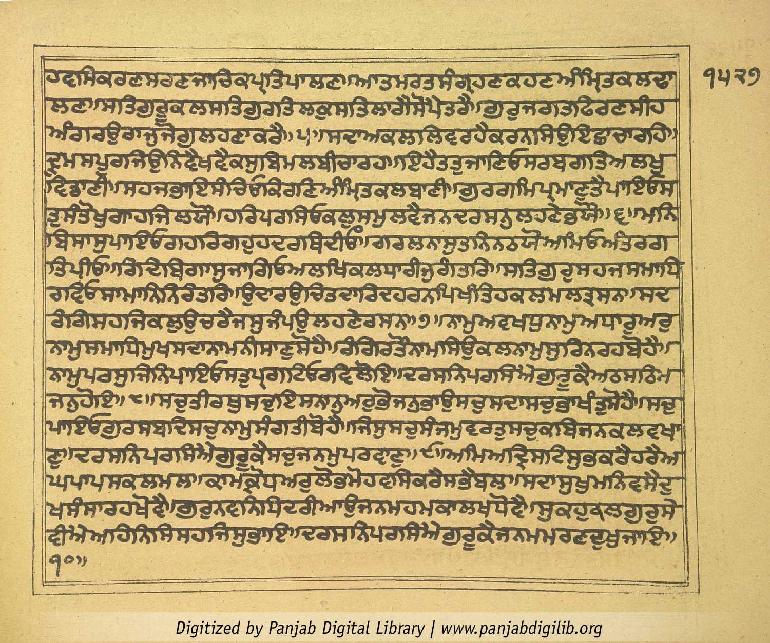 ਹਵਸਿਕਰਣਸਰਣਜਾਚਿਕਪ੍ਰਤਿਪਾਲਣ॥ਆਤਮਰਤਸੰਗ੍ਰਹਣਕਹਣਅੰਮ੍ਰਿਤਕਲਢਾ ੧੫੨੭
ਲਣ॥ਸਤਿਗੁਰੂਕਲਸਤਿਗੁਰਤਿਲਕੁਸਤਿਲਾਗੈਸੋਪੈਤਰੈ॥ਗੁਰੁਜਗਤਫਿਰਣਸੀਹ
ਅੰਗਰਉਰਾਜੁਜੋਗੁਲਹਣਾਕਰੈ॥੫॥ਸਦਾਅਕਲਲਿਵਰਹੈਕਰਨਸਿਉਇਛਾਚਾਰਹਿ॥
ਦ੍ਰੁਮਸਪੂਰਜਿਉਨਿਵੈਖਵੈਕਸੁਬਿਮਲਬੀਚਾਰਹ॥ਇਹੈਤਤੁਜਾਣਿਓਸਰਬਗਤਿਅਲਖੁ
ਵਿਡਾਣੀ॥ਸਹਜਭਾਇਸੰਚਿਓਕਿਰਣਿਅੰਮ੍ਰਿਤਕਲਬਾਣੀ॥ਗੁਰਗਮਿਪ੍ਰਮਾਣੁਤੈਪਾਇਓਸ
ਤੁਸੰਤੋਖੁਗ੍ਰਾਹਜਿਲਯੌ॥ਹਰਿਪਰਸਿਓਕਲੁਸਮੁਲਵੈਜਨਦਰਸਨੁਲਹਣੇਭਯੌ॥੬॥ਮਨਿ
ਬਿਸਾਸੁਪਾਇਓਗਹਰਿਗਹੁਹਦਰਥਿਦੀਓ॥ਗਰਲਨਾਸੁਤਨਿਨਠਯੌਅਮਿਓਅੰਤਰਗ
ਤਿਪੀਓ॥ਰਿਦਿਬਿਗਾਸੁਜਾਗਿਓਅਲਖਿਕਲਧਾਰੀਜੁਗੰਤਰਿ॥ਸਤਿਗੁਰੁਸਹਜਸਮਾਧਿ
ਰਵਿਓਸਾਮਾਨਿਨਿਰੰਤਰਿ॥ਉਦਾਰਉਚਿਤਦਾਰਿਦਹਰਨਪਿਖੰਤਿਹਕਲਮਲਤ੍ਰਸਨ॥ਸਦ
ਰੰਗਿਸਹਜਿਕਲੁਉਚਰੈਜਸੁਜੰਪਉਲਹਣੇਰਸਨ॥੭॥ਨਾਮੁਅਵਖਧੁਨਾਮੁਅਧਾਰੁਅਰੁ
ਨਾਮੁਸਮਾਧਿਸੁਖਸਦਾਨਾਮਨੀਸਾਣੁਸੋਹੈ॥ਰੰਗਿਰਤੌਨਾਮਸਿਉਕਲਨਾਮੁਸੁਰਿਨਰਹਬੋਹੈ॥
ਨਾਮੁਪਰਸੁਜਿਨਿਪਾਇਓਸਤੁਪ੍ਰਗਟਿਓਰਵਿਲੋਇ॥ਦਰਸਨਿਪਰਸਿਐਗੁਰੂਕੈਅਠਸਠਿਮ
ਜਨੁਹੋਇ॥੮॥ਸਚੁਤੀਰਥੁਸਚੁਇਸਨਾਨੁਅਰੁਭੋਜਨੁਭਾਉਸਚੁਸਦਾਸਚੁਭਾਖੰਤੁਸੋਹੈ॥ਸਚੁ
ਪਾਇਓਗੁਰਸਬਦਿਸਚੁਨਾਮੁਸੰਗਤੀਬੋਹੈ॥ਜਿਸੁਸਚੁਸੰਜਮੁਵਰਤੁਸਚੁਕਬਿਜਨਕਲਵਖਾ
ਣੁ॥ਦਰਸਨਿਪਰਸਿਐਗੁਰੂਕੈਸਚੁਜਨਮੁਪਰਵਾਣੁ॥੯॥ਅਮਿਅਦ੍ਰਿਸਟਿਸੁਭਕਰੈਹਰੈਅ
ਘਪਾਪਸਕਲਮਲ॥ਕਾਮਕ੍ਰੋਧਅਰੁਲੋਭਮੋਹਵਸਿਕਰੈਸਭੈਬਲ॥ਸਦਾਸੁਖੁਮਨਿਵਸੈਦੁ
ਖਸੰਸਾਰਹਖੋਵੈ॥ਗੁਰੁਨਵਨਿਧਿਦਰੀਆਉਜਨਮਹਮਕਾਲਖਧੋਵੈ॥ਸੁਕਹੁਕਲਗੁਰੁਸੇ
ਵੀਐਅਹਿਨਿਸਿਸਹਜਿਸੁਭਾਇ॥ਦਰਸਨਿਪਰਸਿਐਗੁਰੂਕੈਜਨਮਮਰਣਦੁਖੁਜਾਇ॥
੧੦॥
Digitized by Panjab Digital Library | www.panjabdigilib.org